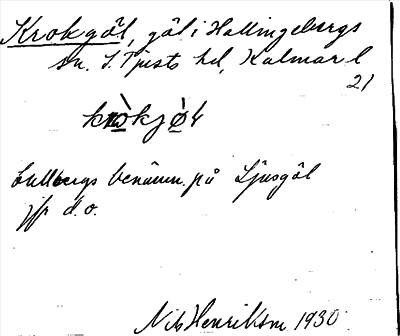 Krokgöl, göl i Hallingebergs
sn. S. Tjusts hd, Kalmar l
21
kròkjø̀l
benämn. på Ljusgöl
jfr d.o.
Nils Henriksson 1930